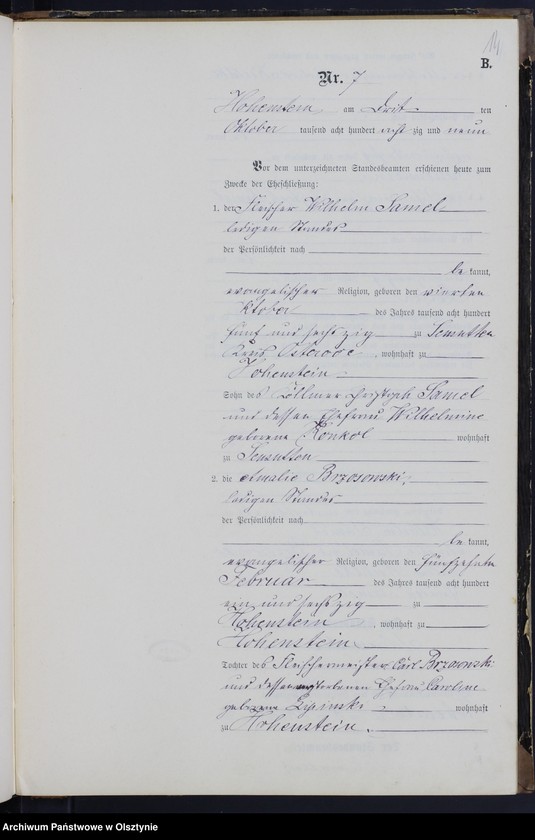 14
B.
Nr. 7
Hohenstein am Drit ten
Oktober tausend acht hundert acht zig und neun
Vor dem unterzeichneten Standesbeamten erschienen heute zum
Zwecke der Eheschließung:
1. der Fleischer Wilhelm Samel
ledigen Standes
der Persönlichkeit nach
be kannt,
evangelischer Religion, geboren den vierten
Oktober des Jahres tausend acht hundert
fünf und sechs zig zu
Kreis Osterode, wohnhaft zu
Hohenstein
Sohn des Köllmer Christoph Samel
und dessen Ehefrau Wilhelmine
geborene Konkol wohnhaft
zu
2. die Amalie Brzosowski,
ledigen Standes
der Persönlichkeit nach
be kannt,
evangelischer Religion, geboren den fünfzehnten
Februar des Jahres tausend acht hundert
ein und sechs zig zu
Hohenstein, wohnhaft zu
Hohenstein
Tochter des Fleischermeister Carl Brzosowski
und dessen verstorbenen Ehefrau Caroline
geborene wohnhaft
zu Hohenstein.
Archiwum Państwowe w Olsztynie